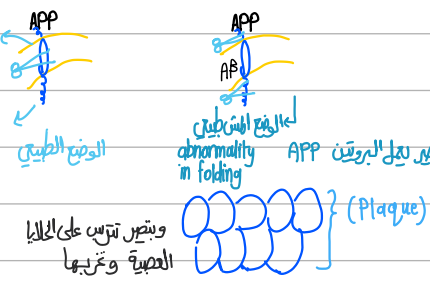 APP
APP
AB
الوضع الطبيعي
الوضع المش طبيعي
abnormality
in folding
APP يعمل البروتين
(Plaque)
وبتصير تترسب على الخلايا
العصبية وتخربها